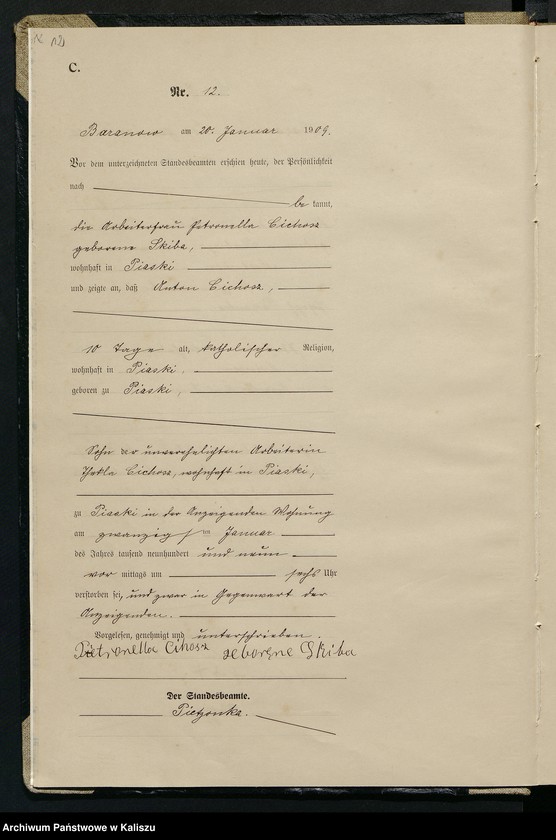 12
C.
Nr. 12.
Baranow am 20. Januar 1909.
Vor dem unterzeichneten Standesbeamten erschien heute, der Persönlichkeit
nach
be kannt,
die Arbeiterfrau Petronella Cichosz
geborene Skiba,
wohnhaft in Piaski
und zeigte an, daß Anton Cichosz,
10 Tage alt, katholischer Religion,
wohnhaft in Piaski.
geboren zu Piaski,
Sohn der unverehelichten Arbeiterin
Thekla Cichosz, wohnhaft in Piaski,
zu Piaski in der Anzeigenden Wohnung
am zwanzigsten Januar
des Jahres tausend neunhundert und neun
vor mittags um sechs Uhr
verstorben sei, und zwar in Gegenwart der
Anzeigenden.
Vorgelesen, genehmigt und unterschrieben.
Pietronella Cihosz geborene Skiba
Der Standesbeamte.
Pietzonka.
Archiwum Państwowe w Kaliszu